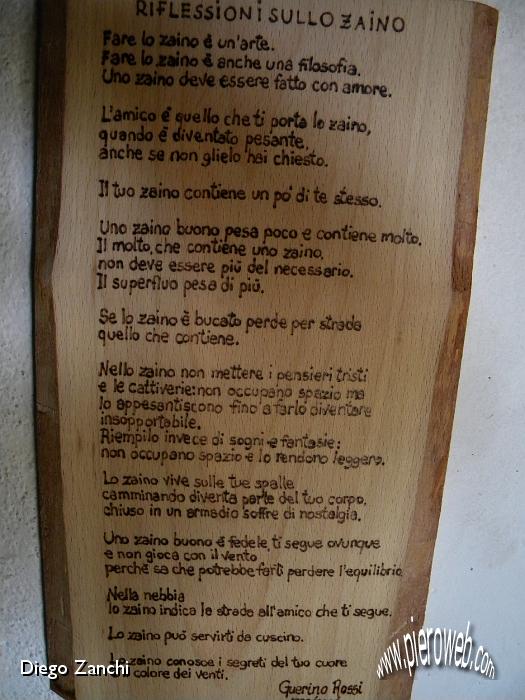 RIFLESSIONI SULLO ZAINO
Fare lo zaino è un'arte.
Fare lo zaino è anche una filosofia.
Uno zaino deve essere fatto con amore.
L'amico è quello che ti porta lo zaino,
quando è diventato pesante,
anche se non glielo hai chiesto.
Il tuo zaino contiene un po' di te stesso.
Uno zaino buono pesa poco e contiene molto.
Il molto, che contiene uno zaino,
non deve essere più del necessario.
Il superfluo pesa di più.
Se lo zaino è bucato perde per strada
quello che contiene.
Nello zaino non mettere i pensieri tristi
e le cattiverie: non occupano spazio ma
lo appesantiscono fino a farlo diventare
insopportabile.
Riempilo invece di sogni e fantasie:
non occupano spazio e lo rendono leggero.
Lo zaino vive sulle tue spalle
camminando diventa parte del tuo corpo,
chiuso in un armadio soffre di nostalgia.
Uno zaino buono è fedele, ti segue ovunque
e non gioca con il vento
perchè sa che potrebbe farti perdere l'equilibrio
Nella nebbia
lo zaino indica la strada all'amico che ti segue.
Lo zaino può servirti da cuscino.
Lo zaino conosce i segreti del tuo cuore
colore dei venti.
Guerino Rossi
Diego Zanchi
www.pieroweb.com